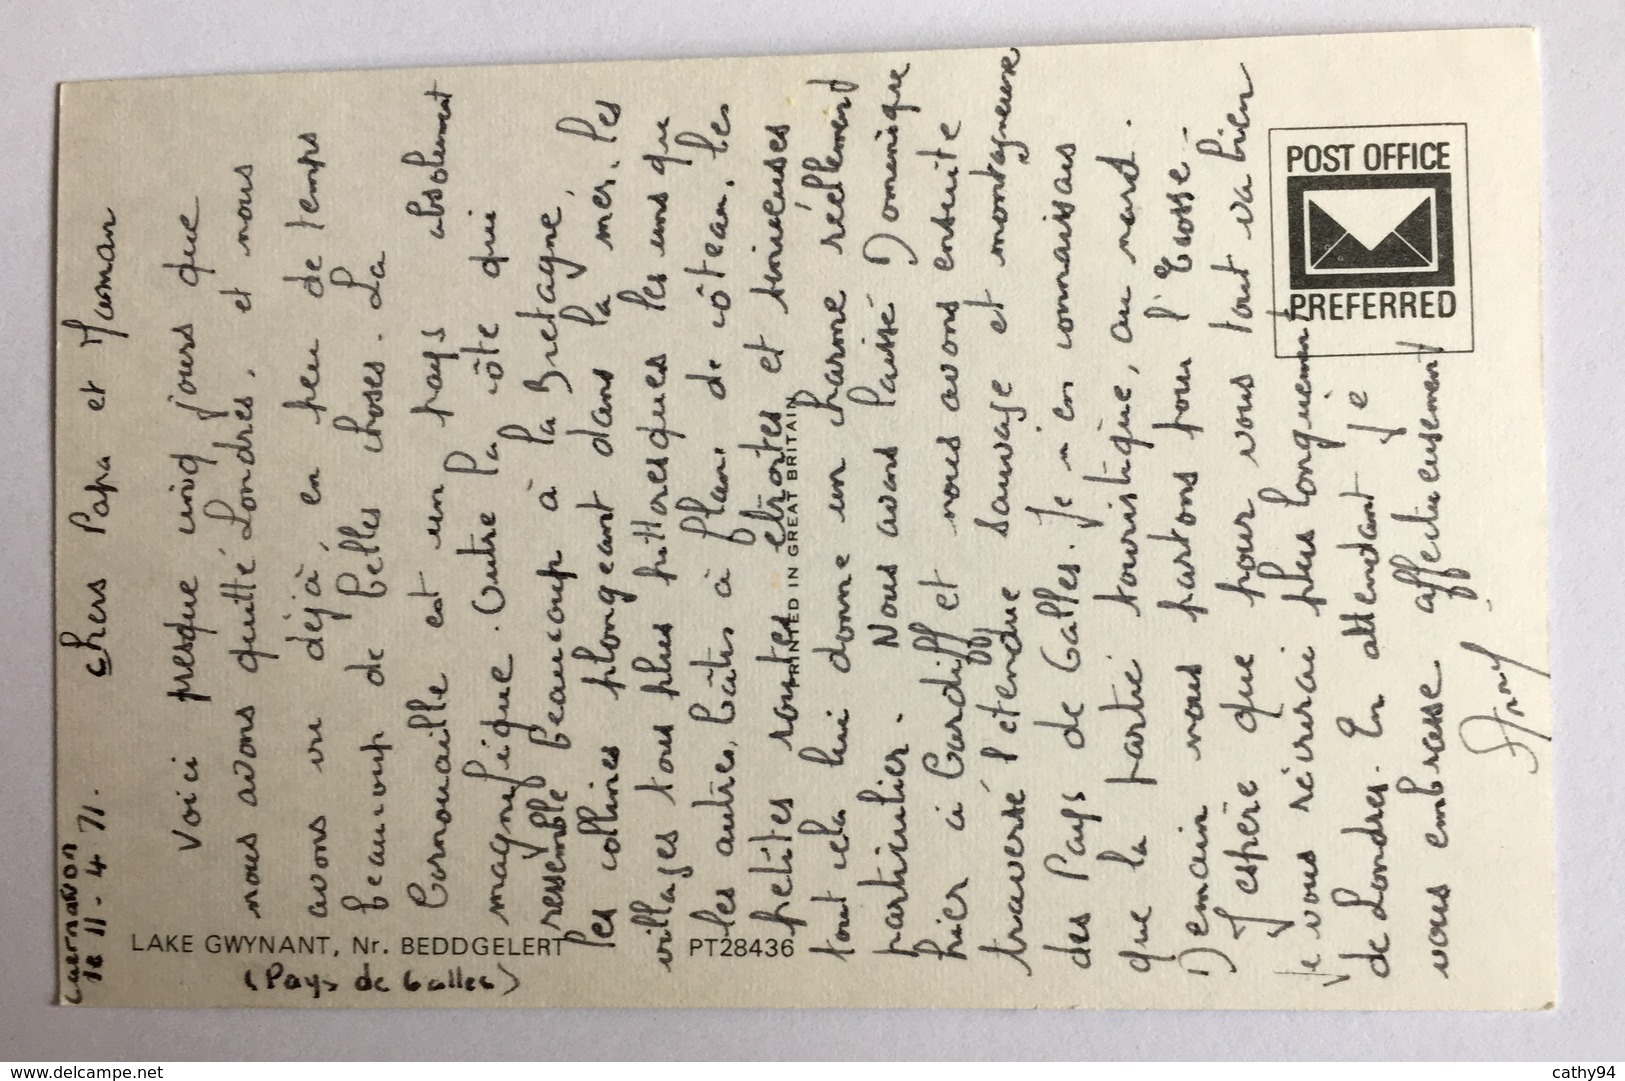 Caernarvon
le 11-4 71.
Chers Papa et Maman
Voici presque cinq jours que
nous avons quitté Londres, et nous
avons vu déjà, en peu de temps
beaucoup de belles choses. La
Cornouaille est un pays absolument
magnifique. Outre la côte qui
ressemble beaucoup à la Bretagne,
les collines plongeant dans la mer, les
villages tous plus pittoresques les uns que
les autres, bâtis à flanc de côteau, les
petites routes étroites et sinueuses
tout cela lui donne un charme réellement
particulier. Nous avons laissé Dominique
hier à Cardiff et nous avons ensuite
traversé l'étendue sauvage et montagneuse
des Pays de Galles. Je n'en connaissais
que la partie touristique, au nord.
Demain nous partons pour l'Ecosse-
J'espère que pour vous tout va bien
Je vous récrirai plus longuement
de Londres. En attendant je
vous embrasse affectueusement
Anny
LAKE GWYNANT, Nr. BEDDGELERT
PT28436
(Pays de Galles)
PRINTED IN GREAT BRITAIN
POST OFFICE
PREFERRED
www.delcampe.net
cathy94